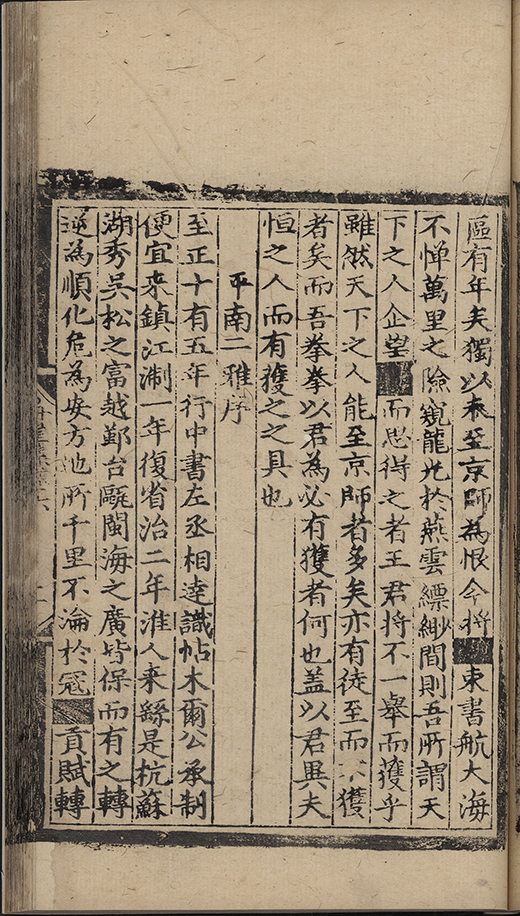 區有年夫獨以未至京師為恨今將東書航大海
不憚萬里之險窺龍光於燕雲縹緲間則吾所謂天
下之人企望而思得之者王君將不一舉而獲乎
雖然天下之人能至京師者多矣亦有徒至而不獲
者矣而吾拳拳以君為必有獲者何也盖以君異夫
恒之人而有獲之之具也
平南二雅序
至正十有五年行中書左丞相逹識帖木爾公承制
便宜来鎮江淛一年復省治二年淮人来繇是杭蘇
湖秀吳松之富越鄞台甌閩海之廣皆保而有之轉
逆為順化危為安方地所千里不淪於冦貢賦轉